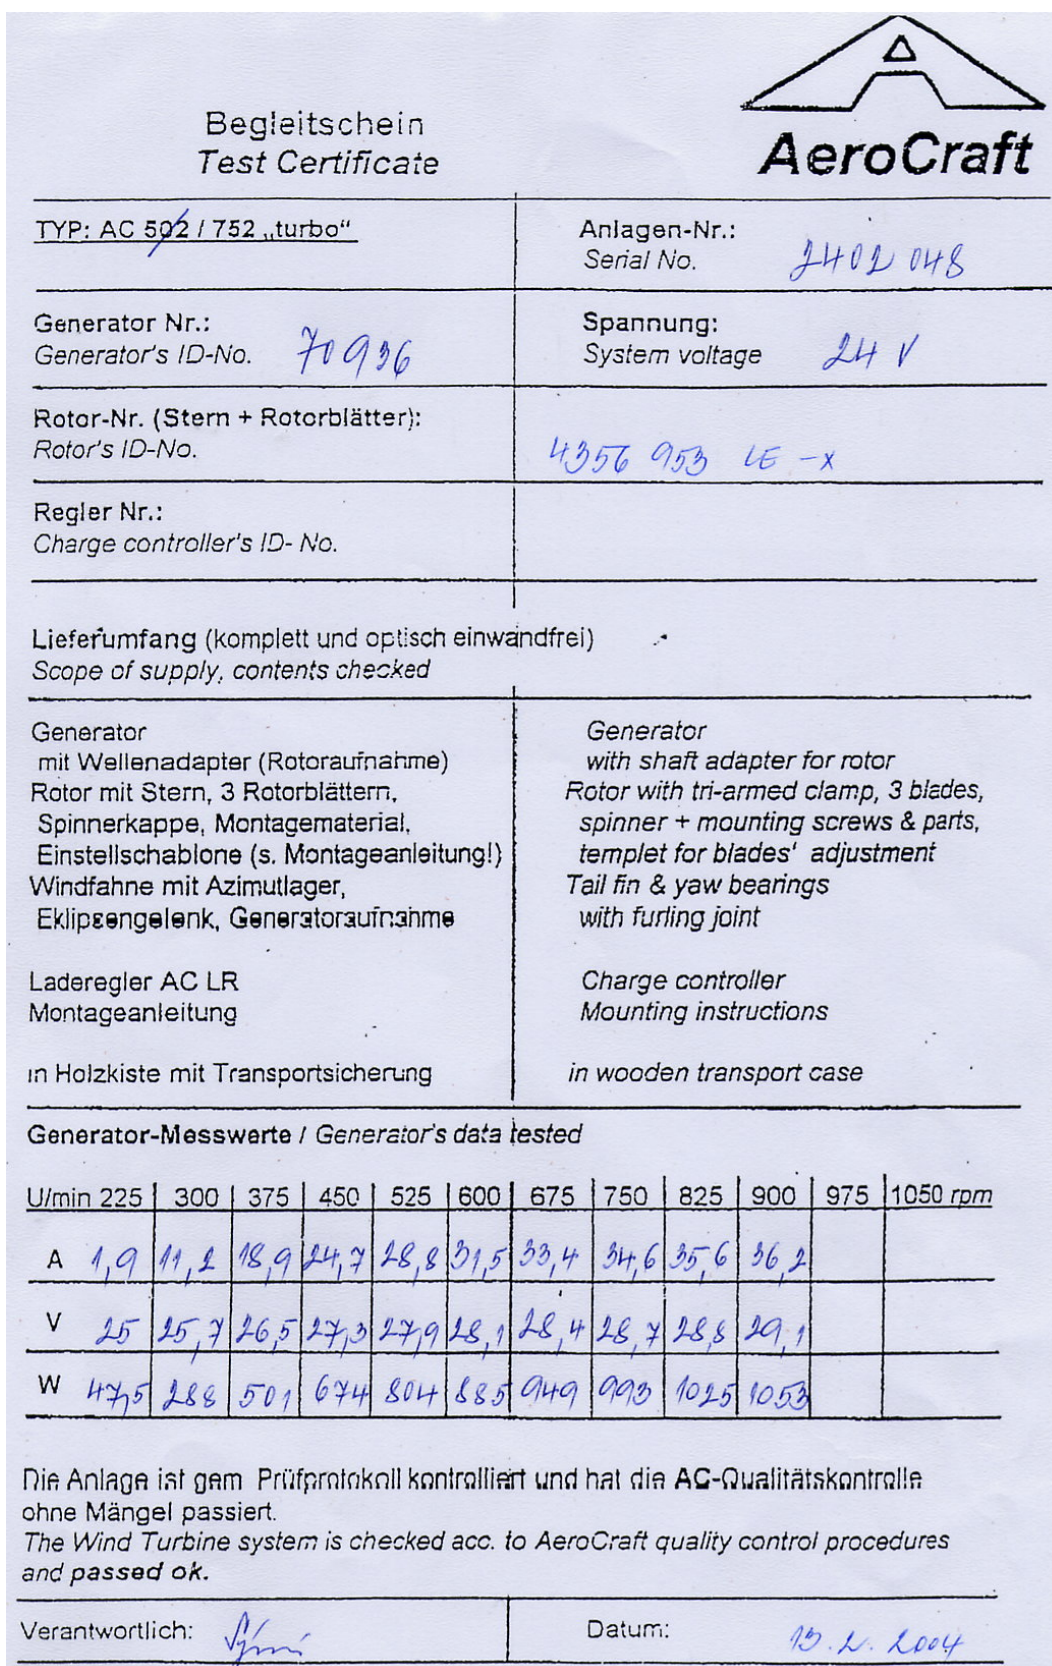 AeroCraft
Begleitschein
Test Certificate
TYP: AC 502 / 752 „turbo“
Anlagen-Nr.:
Serial No. 2402 048
Generator Nr.:
Generator's ID-No. 70936
Spannung:
System voltage 24 V
Rotor-Nr. (Stern + Rotorblätter):
Rotor's ID-No. 4356 953 LE -x
Regler Nr.:
Charge controller's ID- No.
Lieferumfang (komplett und optisch einwandfrei)
Scope of supply, contents checked
Generator
mit Wellenadapter (Rotoraufnahme)
Rotor mit Stern, 3 Rotorblättern,
Spinnerkappe, Montagematerial,
Einstellschablone (s. Montageanleitung!)
Windfahne mit Azimutlager,
Eklipsengelenk, Generatoraufnahme
Laderegler AC LR
Montageanleitung
in Holzkiste mit Transportsicherung
Generator
with shaft adapter for rotor
Rotor with tri-armed clamp, 3 blades,
spinner + mounting screws & parts,
templet for blades' adjustment
Tail fin & yaw bearings
with furling joint
Charge controller
Mounting instructions
in wooden transport case
Generator-Messwerte / Generator's data tested
U/min 225 300 375 450 525 600 675 750 825 900 975 1050 rpm
A 1,9 11,2 18,9 24,7 28,8 31,5 33,4 34,6 35,6 36,2
V 25 25,7 26,5 27,3 27,9 28,1 28,4 28,7 28,8 29,1
W 47,5 288 501 674 804 885 949 993 1025 1053
Die Anlage ist gem Prüfprotokoll kontrolliert und hat die AC-Qualitätskontrolle
ohne Mängel passiert.
The Wind Turbine system is checked acc. to AeroCraft quality control procedures
and passed ok.
Verantwortlich:
Datum: 13.2.2004